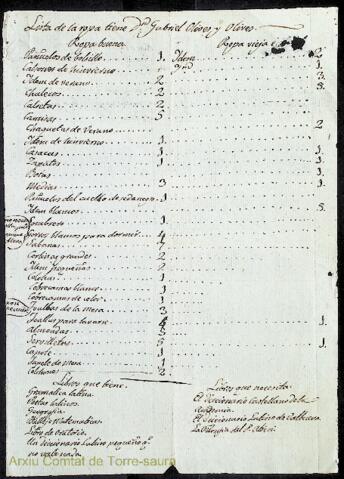 Lista de la ropa tiene Dn. Gabriel Olives y Olives
Ropa buena Ropa vieja
Pañuelos de bolsillo 1. Idem 2
Calsones de hinvierno 1. Ypd 1.
Idem de verano 2 3.
Chalecos 2 3
Calsetas 2
Camisas 5
Chaquetas de Verano 2
Idem de hinvierno 1.
Casacas 1. 1.
Zapatos 1. 1.
Botas 1.
Medias 3 1.
Pañuelos del cuello de seda negro 1.
Idem blancos 5.
Sombrero 1.
Gorros blancos para dormir 4
Sabanas 7
Cortinas grandes 2
Idem pequeñas 2
Colchas 1.
Cobrecamas blanco 1.
Cobrecamas de color 1.
Toallas de la mesa 3
Toallas para lavarse 4 1.
Almoadas 3
Servilletas 5 1.
Capote 1.
Tapete de mesa 1
Colchones 2
Libros que tiene.
Gramatica latina
Poetas latinos.
Geografia
Libro de oratorio.
Un diccionario latino pequeño qe.
no vale nada
Libros que necesita
El Diccionario Castellano de la
Academia.
El Diccionario Latino de Valbuena
Arxiu Comtat de Torre-saura